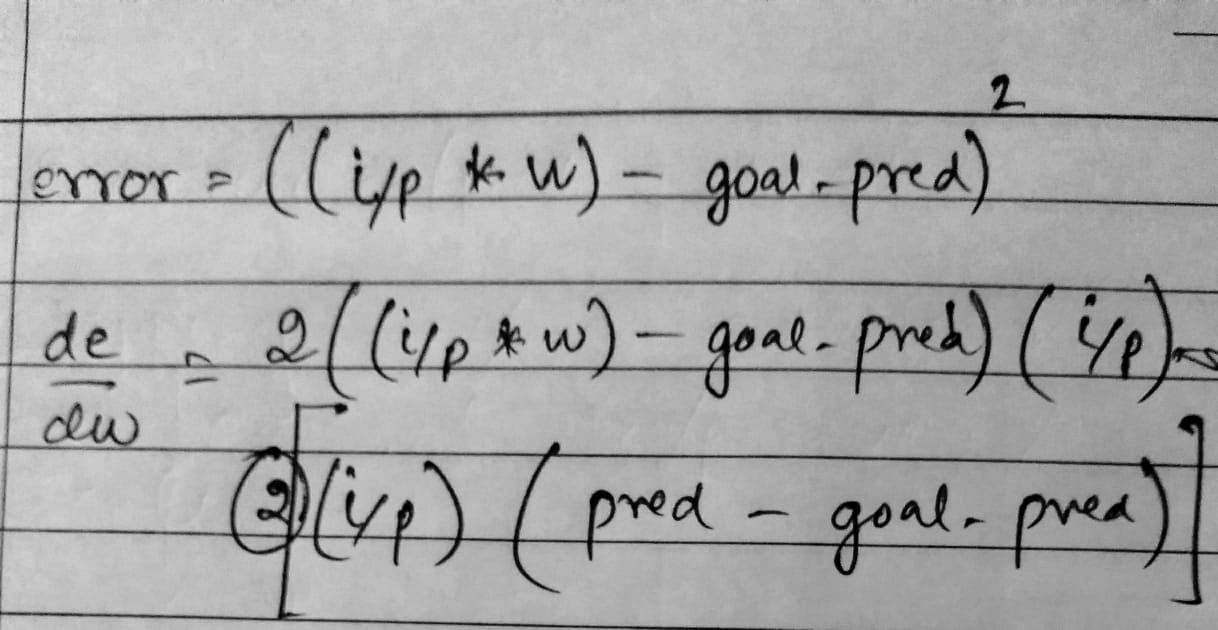 error = ((i/p * w) - goal-pred)²
de/dw = 2((i/p * w) - goal-pred)(i/p)
2[(i/p)(pred - goal-pred)]